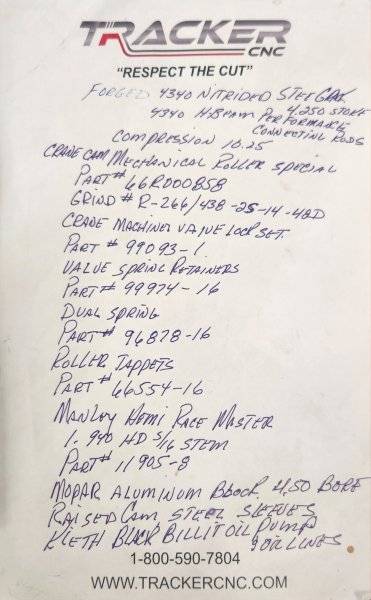 TRACKER
CNC
"RESPECT THE CUT"
FORGED 4340 NITRIDED STEEL CRK
4.250 STOKE
4340 H BEAM PERFORMANCE
CONNECTING RODS
COMPRESSION 10.25
CRANE CAM MECHANICAL ROLLER SPECIAL
PART # 66R000858
GRIND # R-266/438-25-14-48D
CRANE MACHINED VALVE LOCK SET.
PART # 99093-1
VALUE SPRING RETAINERS
PART # 99974-16
DUAL SPRING
PART # 96878-16
ROLLER TAPPETS
PART # 66554-16
MANLEY HEMI RACE MASTER
1.940 HD 5/16 STEM
PART # 11905-8
MOPAR ALUMINUM BLOCK 4.50 BORE
RAISED CAM STEEL SLEEVES
KIETH BLACK BILLIT OIL PUMP
OIL LINES
1-800-590-7804
WWW.TRACKERCNC.COM